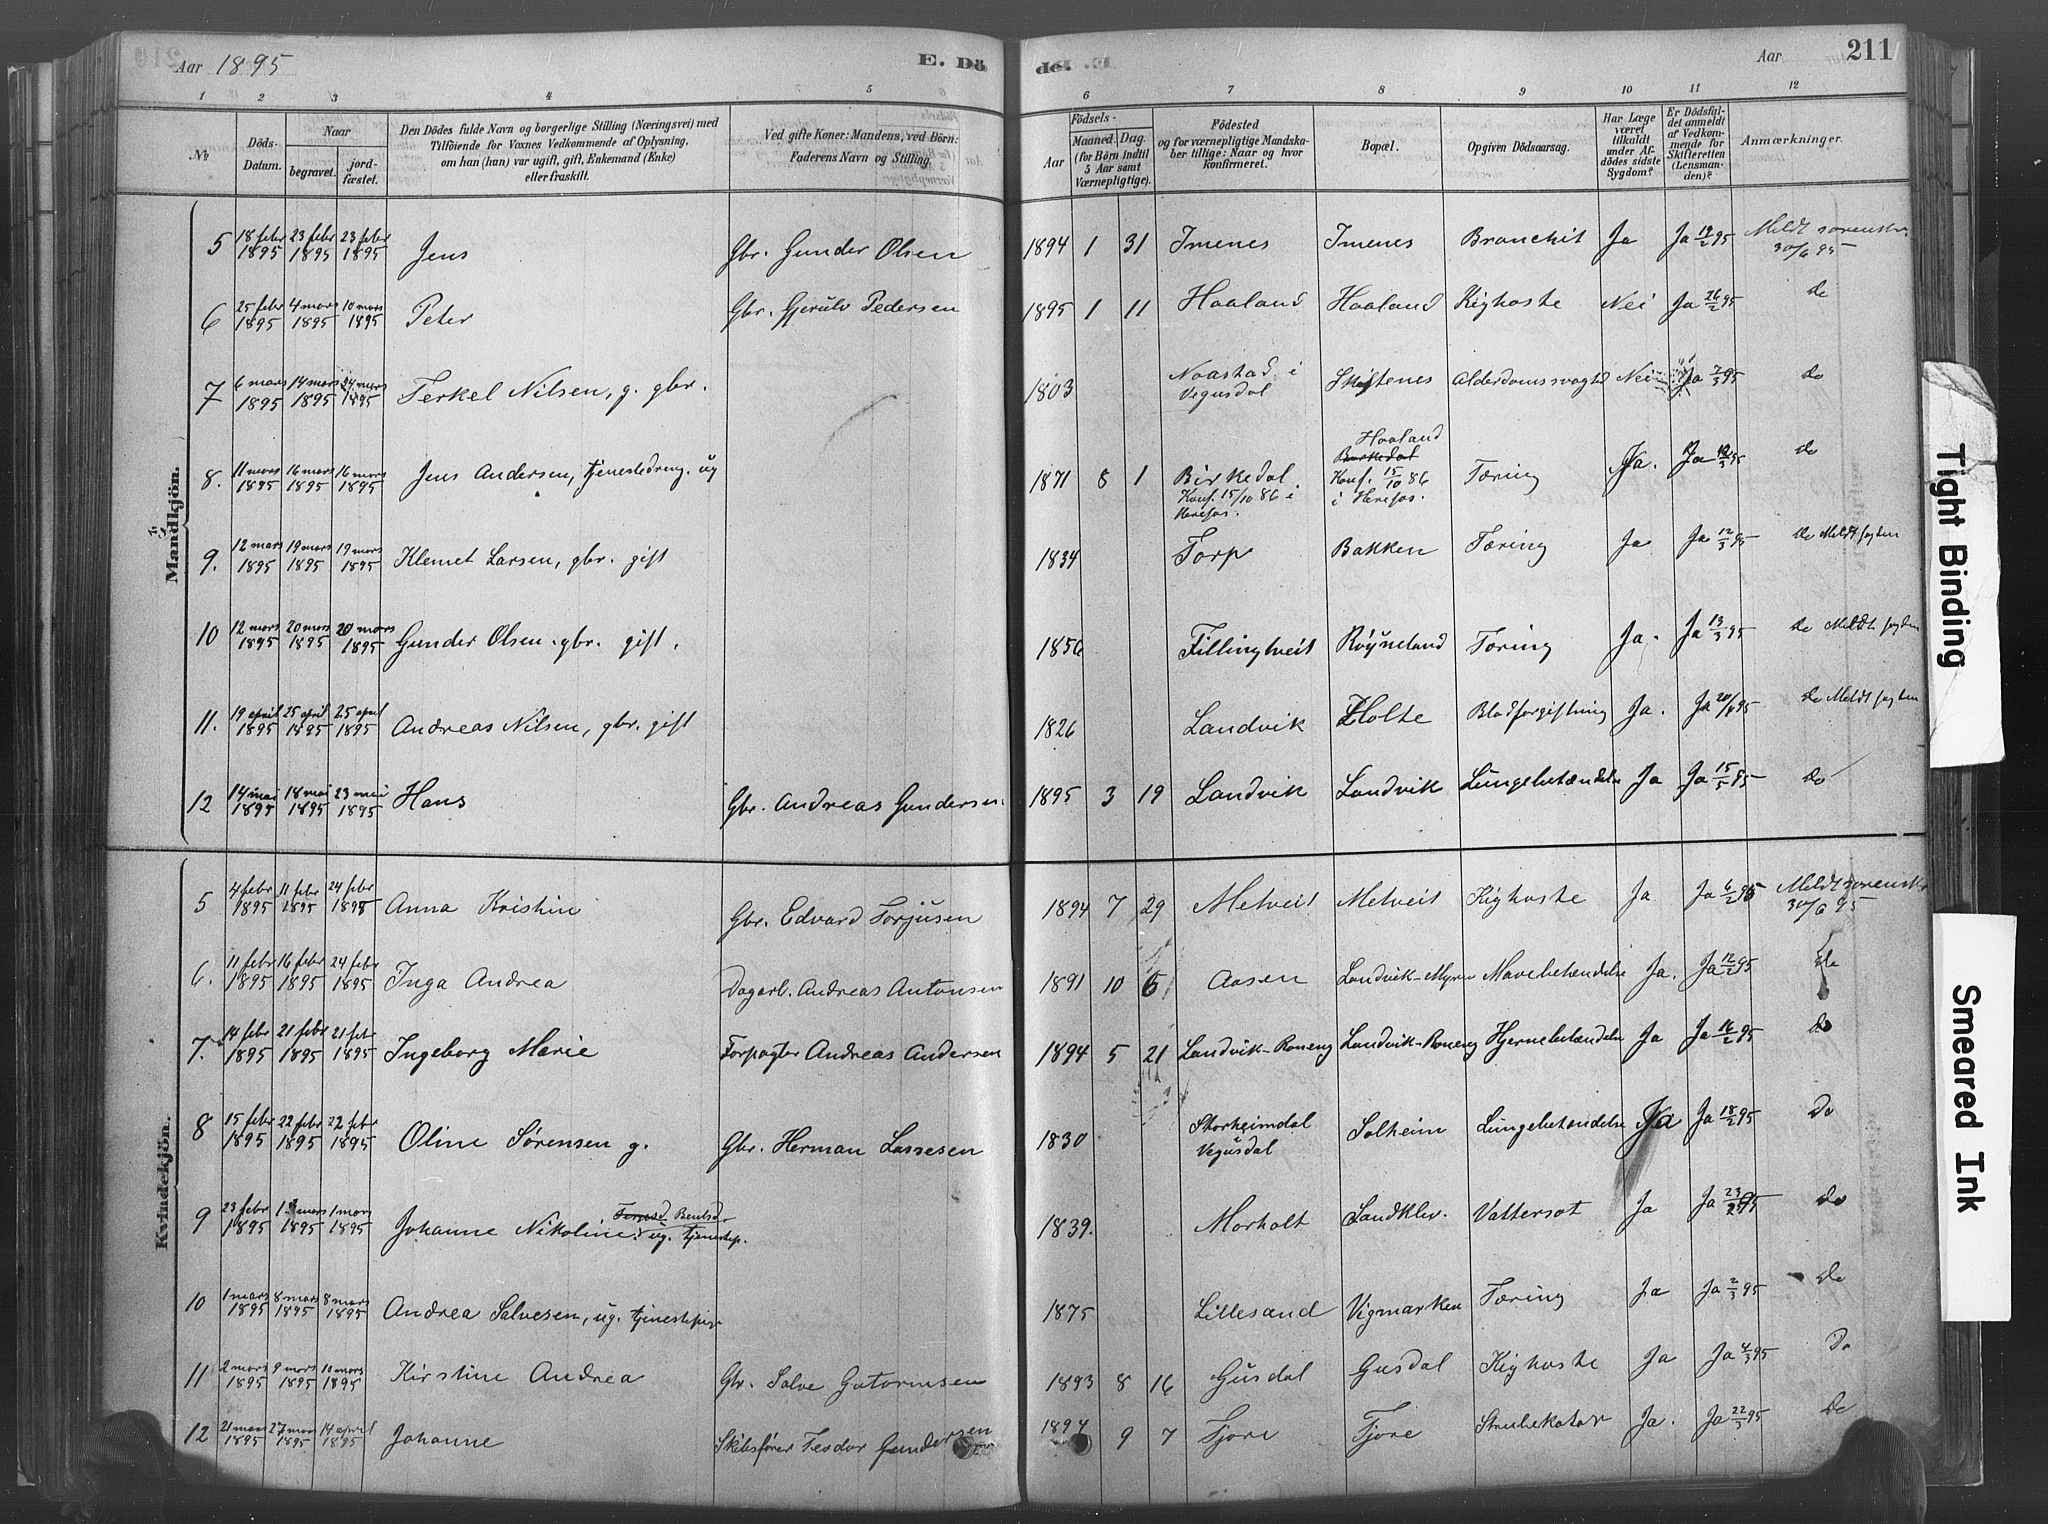 Aar 1895 E. Dö de. Aar 211
1 2 3 4 5 6 7 8 9 10 11 12
№ Döds-Datum. Naar begravet. jordfæstet. Den Dödes fulde Navn og borgerlige Stilling (Næringsvei) med Tilföiende for Voxnes Vedkommende af Oplysning, om han (hun) var ugift, gift, Enkemand (Enke) eller fraskilt. Ved gifte Koner: Mandens, ved Börn: Faderens Navn og Stilling. Födsels- Aar Maaned. Dag. (for Börn indtil 5 Aar samt Værnepligtige). Födested og for værnepligtige Mandskaber tillige: Naar og hvor konfirmeret. Bopæl. Opgiven Dödsaarsag. Har Læge været tilkaldt under Afdödes sidste Sygdom? Er Dödsfaldet anmeldt af Vedkommende for Skifteretten (Lensmanden)? Anmærkninger.
Mandkjön.
5 18 febr 1895 23 febr 1895 23 febr 1895 Jens Gbr. Gunder Olsen 1894 1 31 Imenes Imenes Bronchit Ja Ja 19/2 95 Meldt sorenskr. 30/6 95
6 25 febr 1895 4 mars 1895 10 mars 1895 Peter Gbr. Gjerulv Pedersen 1895 1 11 Haaland Haaland Kighoste Nei Ja 26/2 95 Do
7 6 mars 1895 14 mars 1895 24 mars 1895 Terkel Nilsen, g. gbr. 1803 Naastad i Vegusdal Skiftenes Alderdomssvaghd Nei Ja 7/3 95 do
8. 11 mars 1895 16 mars 1895 16 mars 1895 Jens Andersen, tjenestedreng. ug 1871 8 1 Birkedal. Konf. 15/10 86 i Herefos. Haaland Birkedal Konf. 15/10 86 i Herefos. Tæring Ja. Ja 12/3 95 do
9. 12 mars 1895 19 mars 1895 19 mars 1895 Klemet Larsen, gbr. gift 1834 Torp Bakken Tæring Ja Ja 12/3 95 Do Meldt fogden
10 12 mars 1895 20 mars 1895 20 mars 1895 Gunder Olsen. gbr. gift. 1856 Fillingtveit Röyneland Tæring Ja. Ja 13/3 95 do Meldt fogden
11. 19 april 1895 25 april 1895 25 april 1895 Andreas Nilsen, gbr. gift 1826 Landvik Holte Blodforgiftning Ja. Ja 20/4 95 Do Meldt fogden
12 14 mai 1895 18 mai 1895 23 mai 1895 Hans Gbr. Andreas Gundersen. 1895 3 19 Landvik Landvik Lungebetændelse Ja Ja 15/5 95 Do
Kvindekjön.
5 4 febr 1895 11 febr 1895 24 febr 1895 Anna Kristine Gbr. Edvard Torjusen 1894 7 29 Metveit Metveit Kighoste Ja Ja 6/2 95 Meldt sorenskr 30/6 95
6. 11 febr 1895 16 febr 1895 24 febr 1895 Inga Andrea Dagarb. Andreas Antonsen 1891 10 6 Aasen Landvik-Myren Mavebetændelse Ja. Ja 12/2 95 Do
7. 14 febr 1895 21 febr 1895 21 febr 1895 Ingeborg Marie Forpagter Andreas Andersen 1894 5 21 Landvik-Roneng Landvik-Roneng Hjernebetændelse Ja Ja 16/2 95 do
8 15 febr 1895 22 febr 1895 22 febr 1895 Oline Sørensen g. Gbr. Herman Lassesen 1830 Storheimdal Vegusdal Solheim Lungebetændelse Ja Ja 18/2 95 Do
9 23 febr 1895 1 mars 1895 1 mars 1895 Johanne Nikoline Bentsd. ug. tjenestep. 1839. Morholt Sandklev. Vattersot Ja Ja 23/2 95 do
10 1 mars 1895 8 mars 1895 8 mars 1895 Andrea Salvesen, ug. tjenestepige 1875 Lillesand Vigmarken Tæring Ja Ja 2/3 95 Do
11 2 mars 1895 9 mars 1895 10 mars 1895 Kirstine Andrea Gbr. Salve Gutormsen 1893 8 16 Gusdal Gusdal Kighoste Ja Ja 4/3 95 Do
12 21 mars 1895 27 mars 1895 14 april 1895 Johanne Skibsfører Teodor Gundersen 1894 9 7 Tjore Tjore Strubekatar Ja. Ja 22/3 95 Do
Tight Binding
Smeared Ink